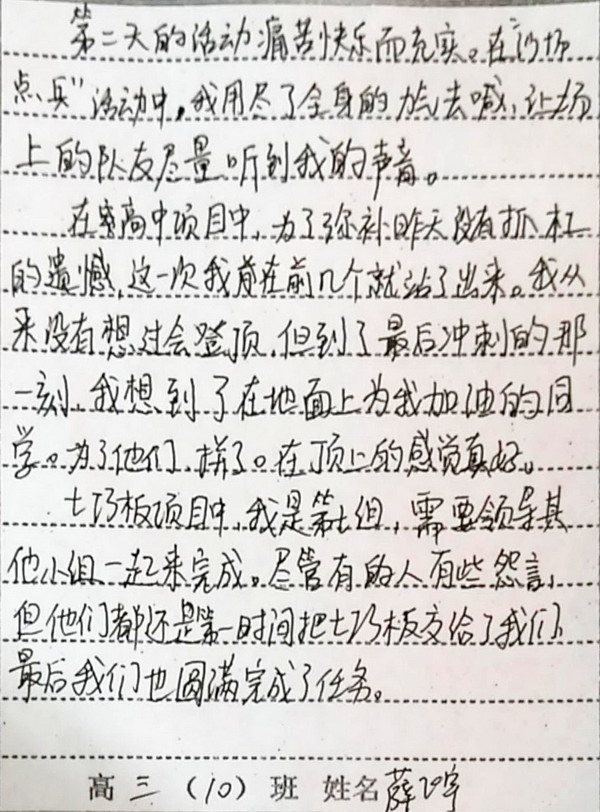 第二天的活动痛苦快乐而充实。在"沙场
点兵"活动中,我用尽了全身的力气去喊,让场
上的队友尽量听到我的声音。
在攀高中项目中,为了弥补昨天没有抓杠
的遗憾,这一次我首在前几个就站了出来。我从
来没有想过会登顶,但到了最后冲刺的那
一刻,我想到了在地面上为我加油的同
学。为了他们,拼了。在顶上的感觉真好。
七巧板项目中,我是第七组,需要领导其
他小组一起来完成。尽管有的人有些怨言,
但他们都还是第一时间把七巧板交给了我们,
最后我们也圆满完成了任务。
高三(10)班 姓名 薛飞宇